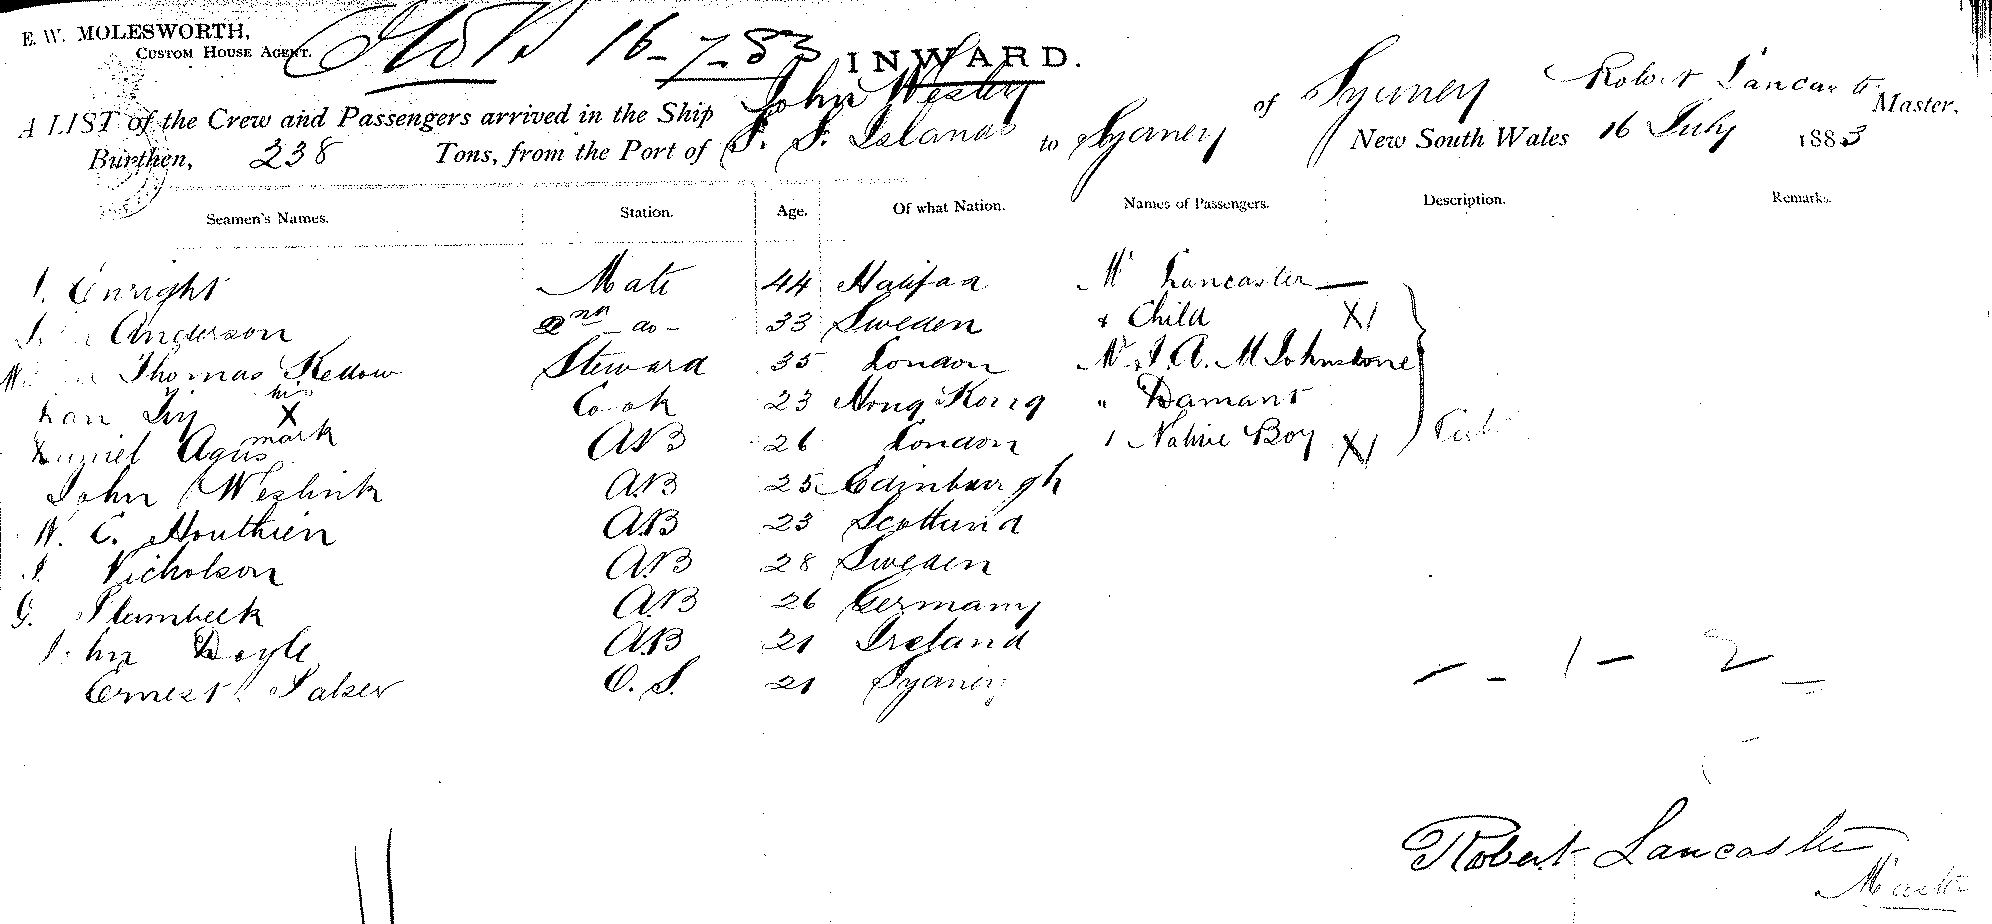 E. W. MOLESWORTH,
CUSTOM HOUSE AGENT.
16-7-83 INWARD.
A LIST of the Crew and Passengers arrived in the Ship John Wesley of Sydney Robert Lancaster Master,
Burthen, 238 Tons, from the Port of S. S. Islands to Sydney New South Wales 16 July 1883
Seamen's Names. Station. Age. Of what Nation. Names of Passengers. Description. Remarks.
Enright Mate 44 Halifax Lancaster
Anderson 2nd do 33 Sweden + Child X1
Thomas Kedow Steward 35 London J. A. M Johnstone
his X Cook 23 Hong Kong " Damant
mark
Agus AB 26 London 1 Native Boy X1
John AB 25 Edinburgh
W. C. AB 23 Scotland
Nicholson AB 28 Sweden
G. AB 26 Germany
Doyle AB 21 Ireland
Ernest O. S. 21 Sydney
- - 1 - 2 -
Robert Lancaster
Master